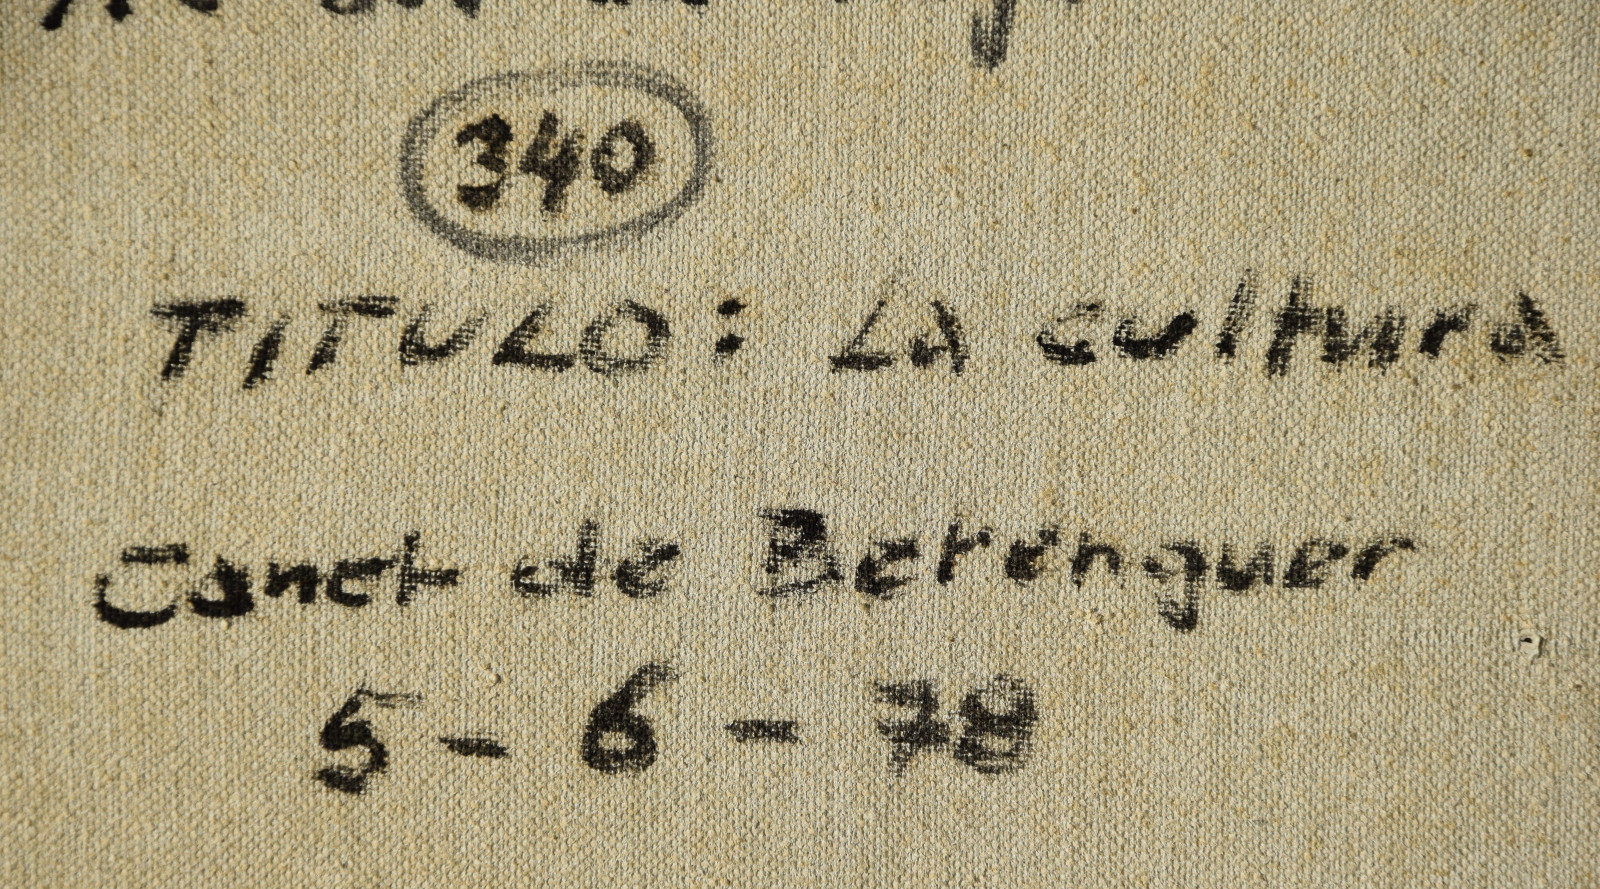 340
TITULO: LA cultura
Canet de Berenguer
5-6-78